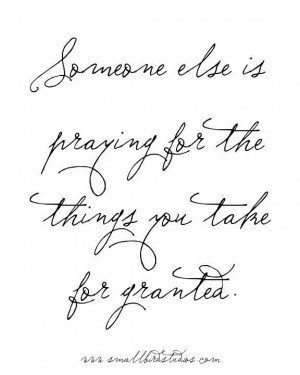 Someone else is
praying for the
things you take
for granted.
www.smallbirdstudios.com